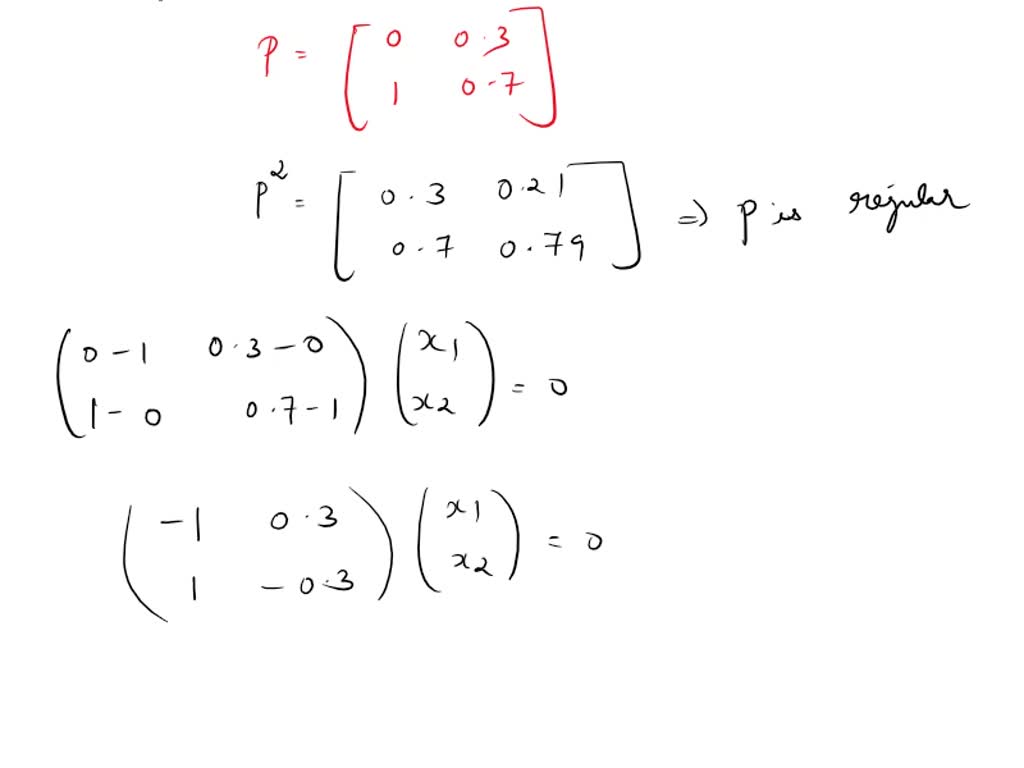 P = [ 0 0.3
1 0.7 ]
P² = [ 0.3 0.21
0.7 0.79 ] ⇒ P is regular
( 0 - 1 0.3 - 0
1 - 0 0.7 - 1 ) ( x1
x2 ) = 0
( -1 0.3
1 - 0.3 ) ( x1
x2 ) = 0